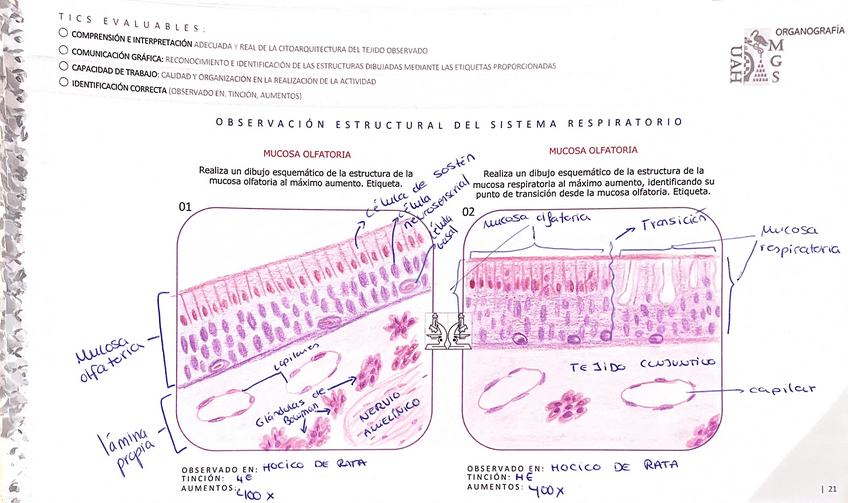 TICS EVALUABLES:
COMPRENSIÓN E INTERPRETACIÓN ADECUADA Y REAL DE LA CITOARQUITECTURA DEL TEJIDO OBSERVADO
COMUNICACIÓN GRÁFICA: RECONOCIMIENTO E IDENTIFICACIÓN DE LAS ESTRUCTURAS DIBUJADAS MEDIANTE LAS ETIQUETAS PROPORCIONADAS
CAPACIDAD DE TRABAJO: CALIDAD Y ORGANIZACIÓN EN LA REALIZACIÓN DE LA ACTIVIDAD
IDENTIFICACIÓN CORRECTA (OBSERVADO EN, TINCIÓN, AUMENTOS)
ORGANOGRAFÍA
UAH
MGS
OBSERVACIÓN ESTRUCTURAL DEL SISTEMA RESPIRATORIO
MUCOSA OLFATORIA
Realiza un dibujo esquemático de la estructura de la
mucosa olfatoria al máximo aumento. Etiqueta.
01
Célula de sostén
Célula
neurosensorial
Célula
basal
Mucosa
olfatoria
lámina
propia
capilares
Glándulas de
Bowman
NERVIO
AMIELÍNICO
OBSERVADO EN: HOCICO DE RATA
TINCIÓN: HE
AUMENTOS: 400 X
MUCOSA OLFATORIA
Realiza un dibujo esquemático de la estructura de la
mucosa respiratoria al máximo aumento, identificando su
punto de transición desde la mucosa olfatoria. Etiqueta.
02
Mucosa olfatoria
Transición
Mucosa
respiratoria
TEJIDO CONJUNTICO
capilar
OBSERVADO EN: HOCICO DE RATA
TINCIÓN: HE
AUMENTOS: 400X
| 21